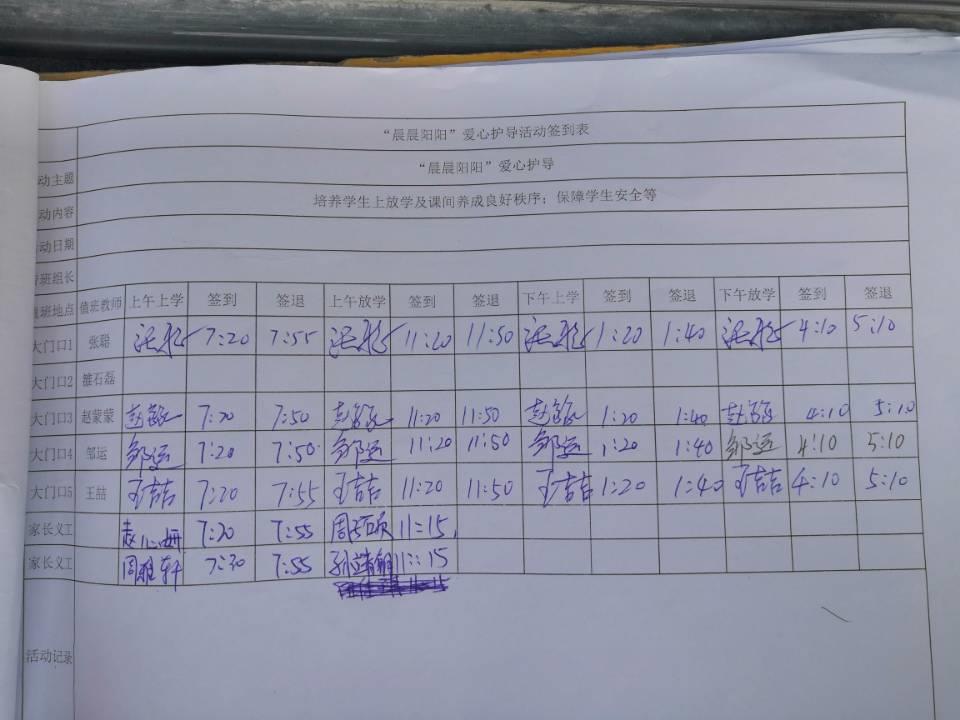 “晨晨阳阳”爱心护导活动签到表
动主题 “晨晨阳阳”爱心护导
动内容 培养学生上放学及课间养成良好秩序；保障学生安全等
动日期
班组长
班地点 值班教师 上午上学 签到 签退 上午放学 签到 签退 下午上学 签到 签退 下午放学 签到 签退
大门口1 张聪 7:20 7:55 11:20 11:50 1:20 1:40 4:10 5:10
大门口2 雒石磊
大门口3 赵蒙蒙 7:20 7:50 11:20 11:50 1:20 1:40 4:10 5:10
大门口4 邹运 邹运 7:20 7:50 邹运 11:20 11:50 邹运 1:20 1:40 邹运 4:10 5:10
大门口5 王喆 王喆 7:20 7:55 王喆 11:20 11:50 王喆 1:20 1:40 王喆 4:10 5:10
家长义工 7:30 7:55 11:15
家长义工 周雅轩 7:30 7:55 11:15
活动记录